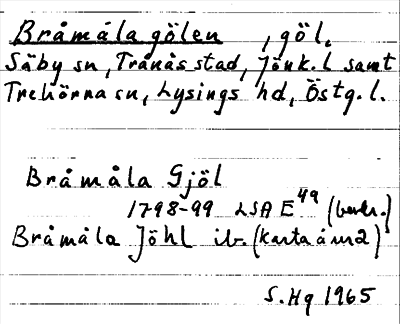 Bråmåla gölen, göl,
Säby sn, Tranås stad, Jönk.l samt
Trehörna sn, Lysings hd, Östg.l.
Bråmåla Gjöl
1798-99 LSA E49 (beskr.)
Bråmåla Jöhl ib. (karta å m2)
S.Hg 1965